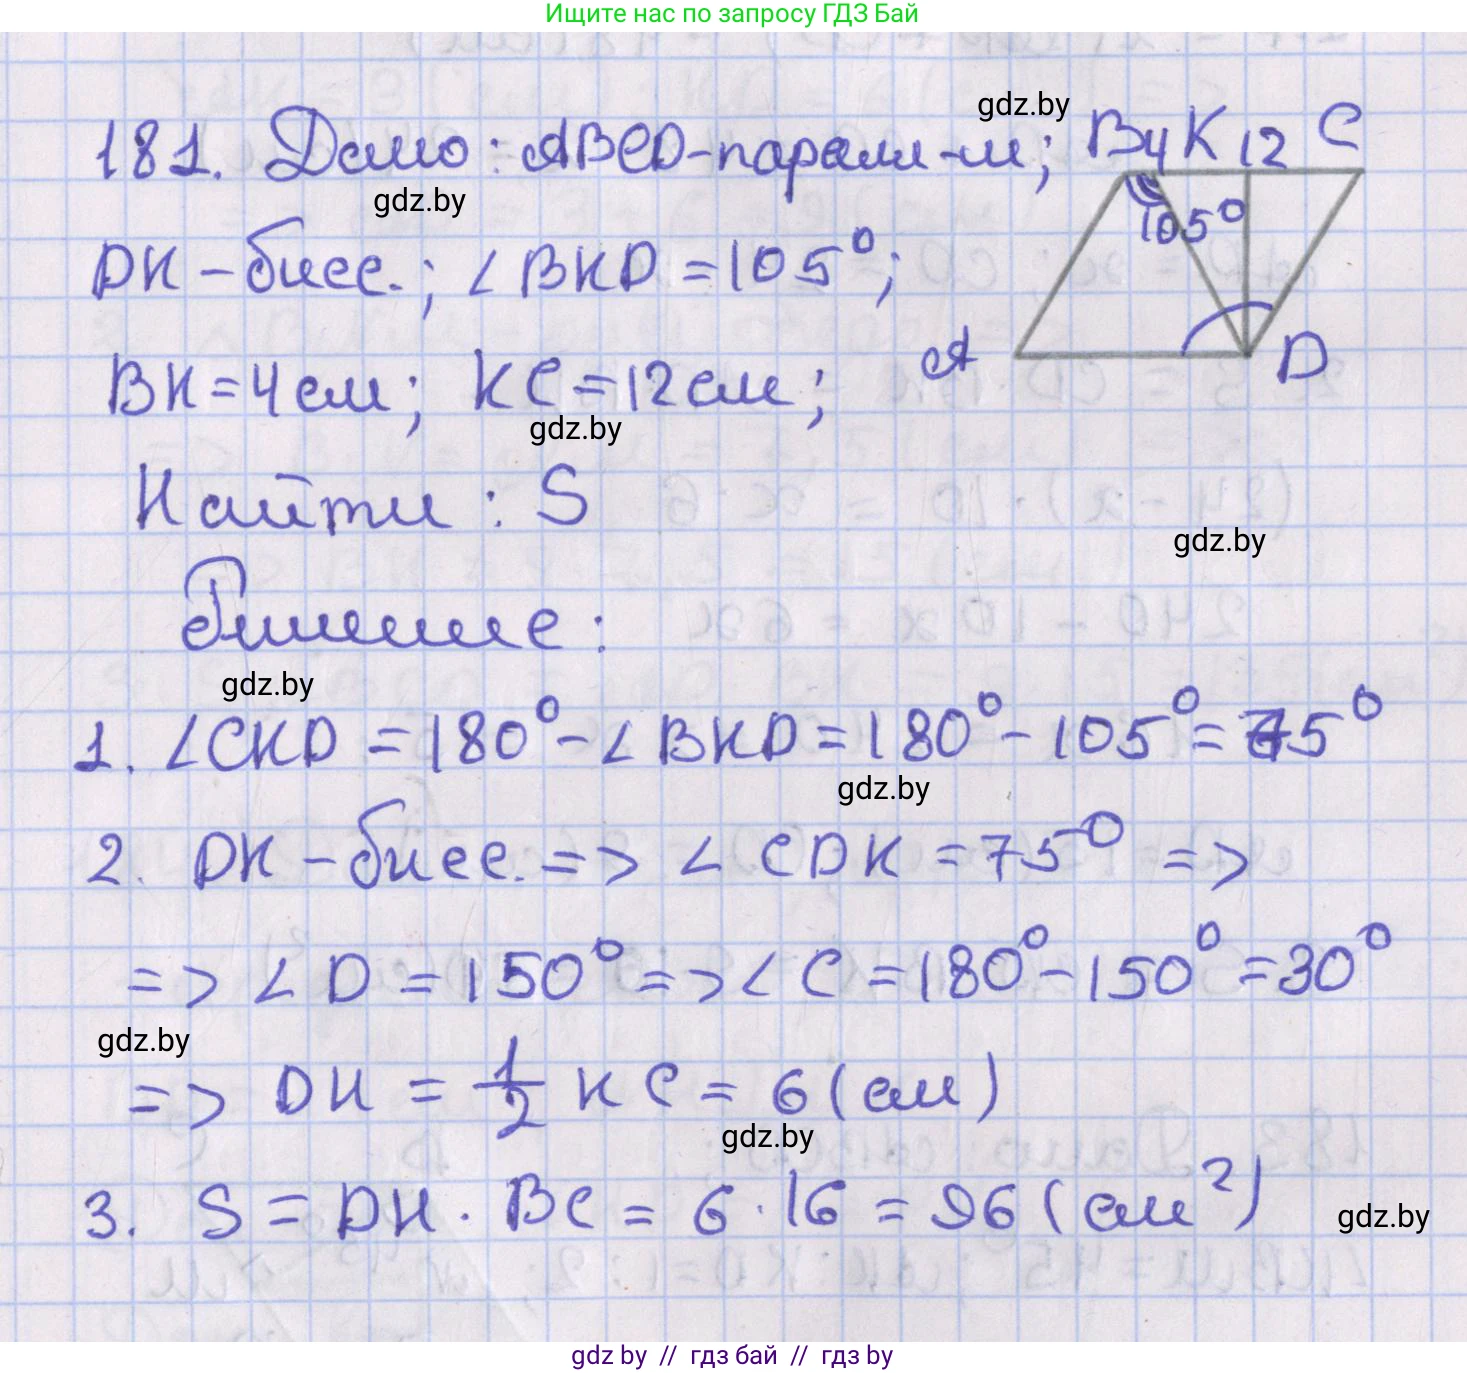 Ищите нас по запросу ГДЗ Бай
gdz.by
181. Дано: ABCD-паралл-м; B 4 K 12 C
gdz.by
105°
DK - бисс.; ∠BKD = 105°;
A D
BK = 4 см; KC = 12 см;
gdz.by
Найти: S
gdz.by
Решение:
gdz.by
1. ∠CKD = 180° - ∠BKD = 180° - 105° = 75°
gdz.by
2. DK - бисс. => ∠CDK = 75° =>
=> ∠D = 150° => ∠C = 180° - 150° = 30°
gdz.by
=> DH = 1/2 KC = 6 (см)
gdz.by
3. S = DH · BC = 6 · 16 = 96 (см²)
gdz.by
gdz by // гдз бай // гдз by